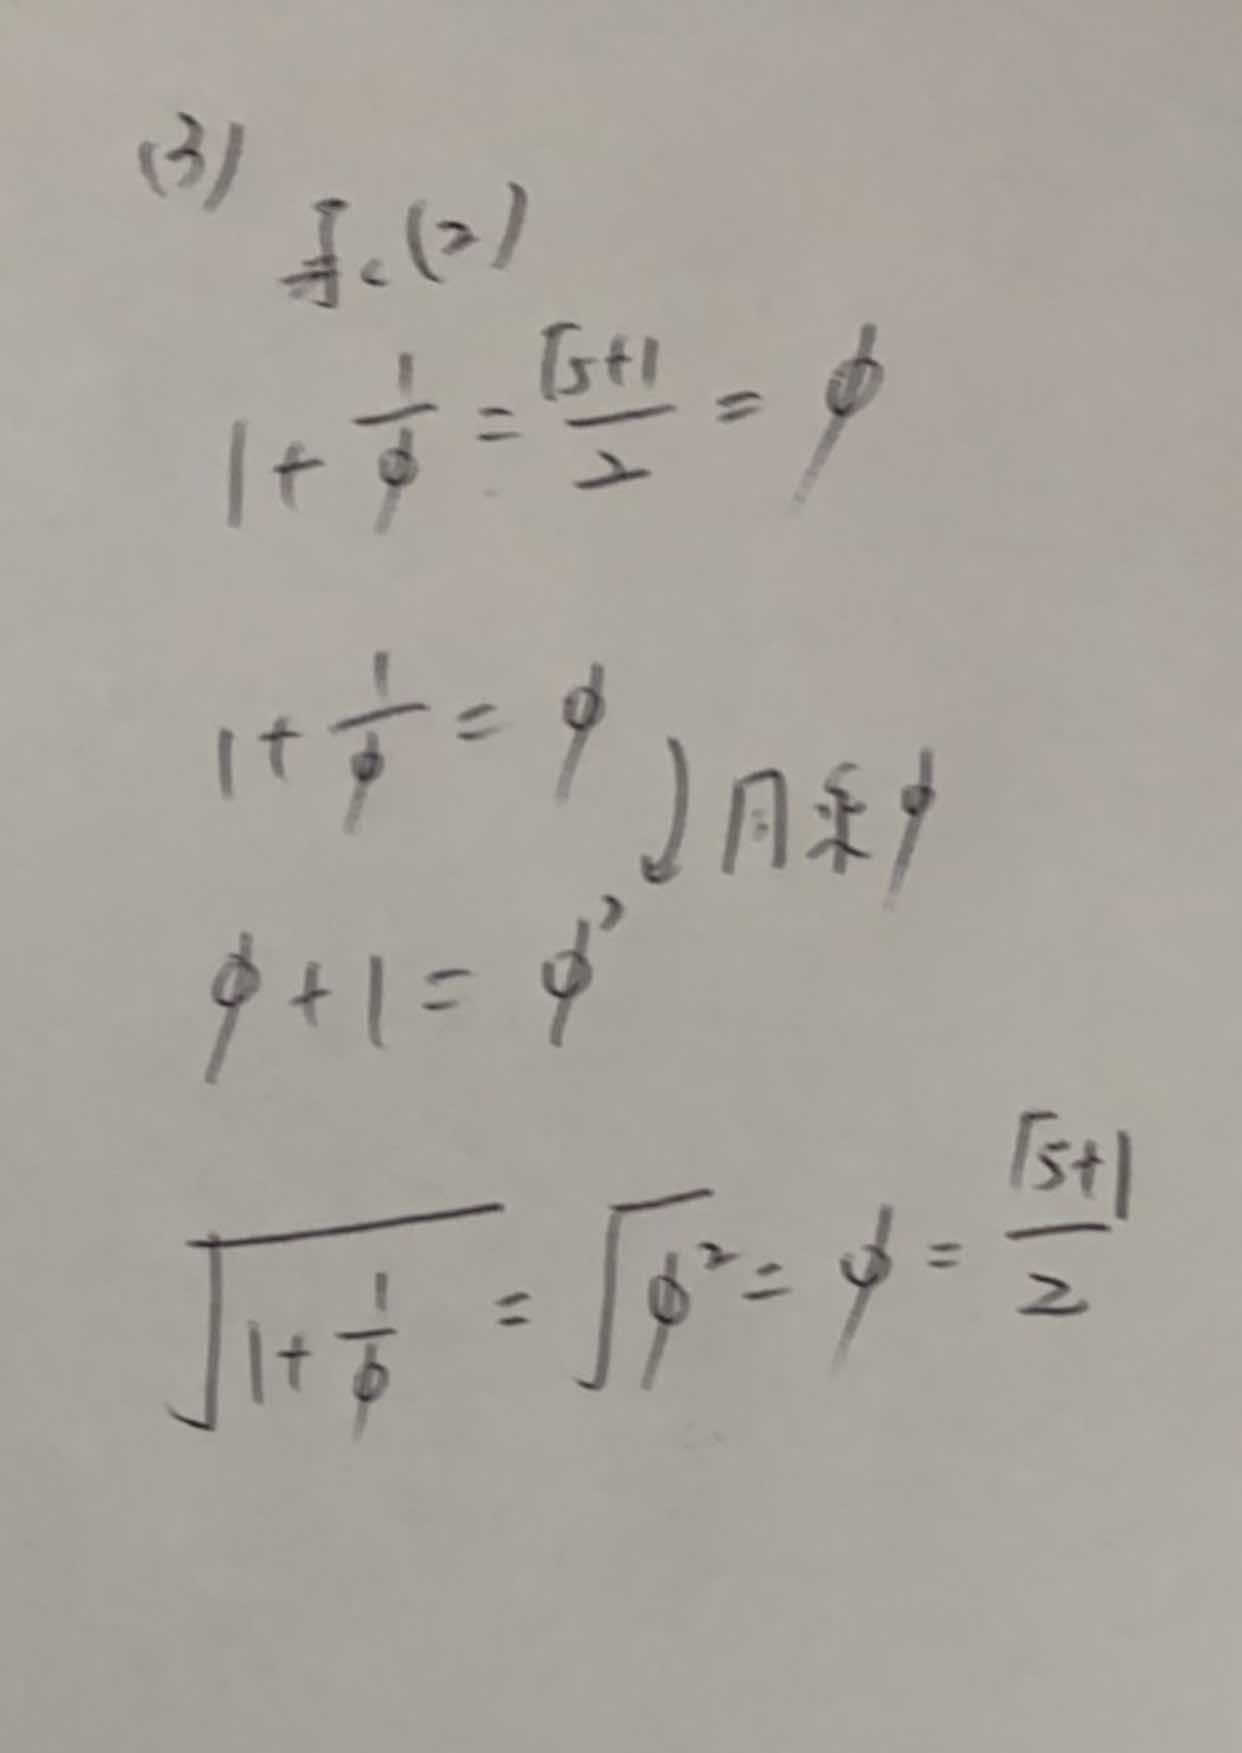 (3)
承(2)
1+1/φ=(√5+1)/2=φ
1+1/φ=φ
同乘φ
φ+1=φ²
√(1+1/φ)=√φ²=φ=(√5+1)/2